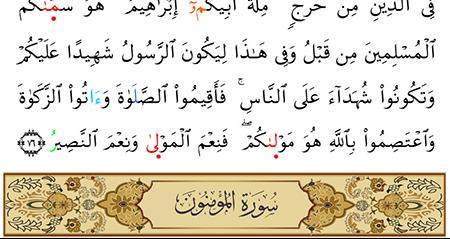 فِى ٱلدِّينِ مِنْ حَرَجٍ مِّلَّةَ أَبِيكُمُۥٓ إِبْرَٰهِيمَ هُوَ سَمَّىٰكُمُ
ٱلْمُسْلِمِينَ مِن قَبْلُ وَفِى هَٰذَا لِيَكُونَ ٱلرَّسُولُ شَهِيدًا عَلَيْكُمْ
وَتَكُونُوا۟ شُهَدَآءَ عَلَى ٱلنَّاسِ ۚ فَأَقِيمُوا۟ ٱلصَّلَوٰةَ وَءَاتُوا۟ ٱلزَّكَوٰةَ
وَٱعْتَصِمُوا۟ بِٱللَّهِ هُوَ مَوْلَىٰكُمْ ۖ فَنِعْمَ ٱلْمَوْلَىٰ وَنِعْمَ ٱلنَّصِيرُ ٧٦
سُورَةُ المُؤْمِنُونَ